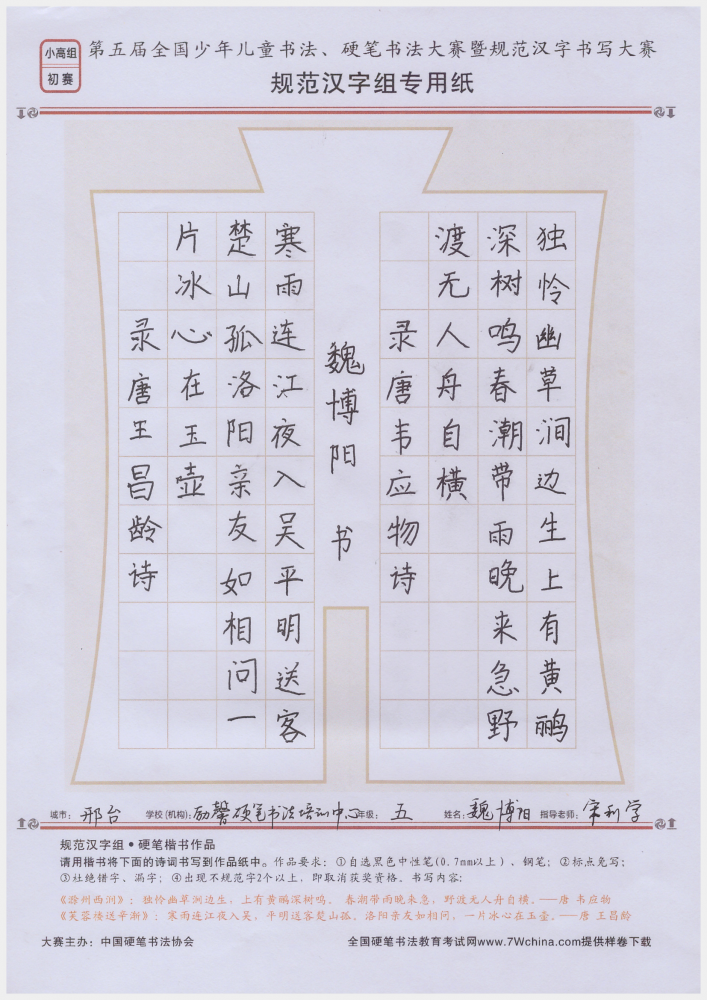 小高组
初赛
第五届全国少年儿童书法、硬笔书法大赛暨规范汉字书写大赛
规范汉字组专用纸
独怜幽草涧边生上有黄鹂
深树鸣春潮带雨晚来急野
渡无人舟自横
录唐韦应物诗
魏博阳 书
寒雨连江夜入吴平明送客
楚山孤洛阳亲友如相问一
片冰心在玉壶
录唐王昌龄诗
城市：邢台 学校(机构)：励馨硬笔书法培训中心 年级：五 姓名：魏博阳 指导老师：宋利学
规范汉字组•硬笔楷书作品
请用楷书将下面的诗词书写到作品纸中。作品要求：①自选黑色中性笔(0.7mm以上)、钢笔；②标点免写；
③杜绝错字、漏字；④出现不规范字2个以上，即取消获奖资格。书写内容：
《滁州西涧》：独怜幽草涧边生，上有黄鹂深树鸣。春潮带雨晚来急，野渡无人舟自横。——唐 韦应物
《芙蓉楼送辛渐》：寒雨连江夜入吴，平明送客楚山孤。洛阳亲友如相问，一片冰心在玉壶。——唐 王昌龄
大赛主办：中国硬笔书法协会 全国硬笔书法教育考试网www.7Wchina.com提供样卷下载